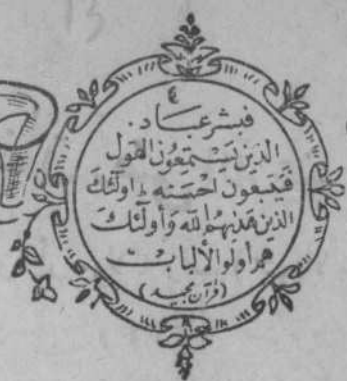 فبشر عبـاد.
الذين يستمعون القول
فيتبعون احسنه اولئك
الذين هديهم الله وأولئك
هم أولو الألباب
(قرآن مجيد)